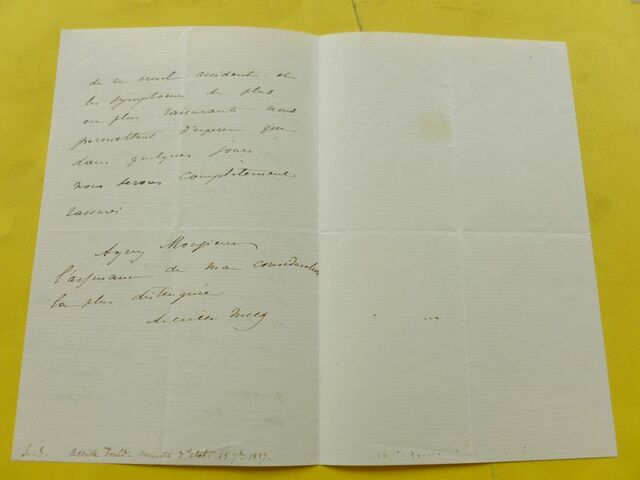 de ce cruel accident et
les symptomes de plus
en plus rassurants nous
permettent d'esperer que
dans quelques jours
nous serons complètement
rassurés.
Agréez Monsieur
l'assurance de ma considération
la plus distinguée
Achille Fould
Achille Fould. Ministre d'Etat. 15 7bre 1857.